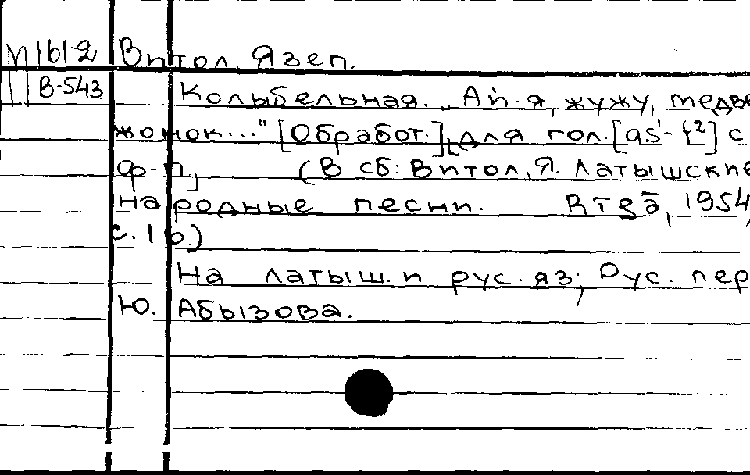 М161-2 Витол Язеп.
В-543 Колыбельная. „Ай-я, жужу, медве
жонок..." [Обработ.] для гол. [as-f²] с
ф-п. (В сб: Витол, Я. Латышские
народные песни. Rīgā, 1954,
с. 16.)
На латыш. и рус. яз; Рус. пер
Ю. Абызова.